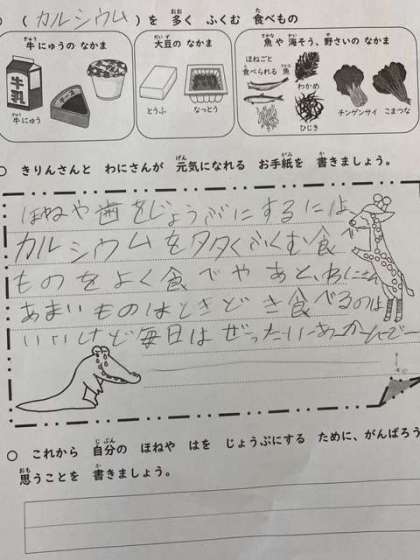 ○ （カルシウム）を 多く ふくむ 食べもの
牛にゅうの なかま
大豆の なかま
魚や 海そう、野さいの なかま
牛乳
牛にゅう
とうふ
なっとう
ほねごと
食べられる 魚
わかめ
ひじき
チンゲンサイ
こまつな
○ きりんさんと わにさんが 元気になれる お手紙を 書きましょう。
ほねや歯をじょうぶにするには
カルシウムを多くふくむ食べ
ものをよく食べてや あと、わにさん
あまいものはときどき食べるのは
いいけど毎日はぜったいあっかんで
○ これから 自分の ほねや はを じょうぶにする ために、がんばろう
思うことを 書きましょう。